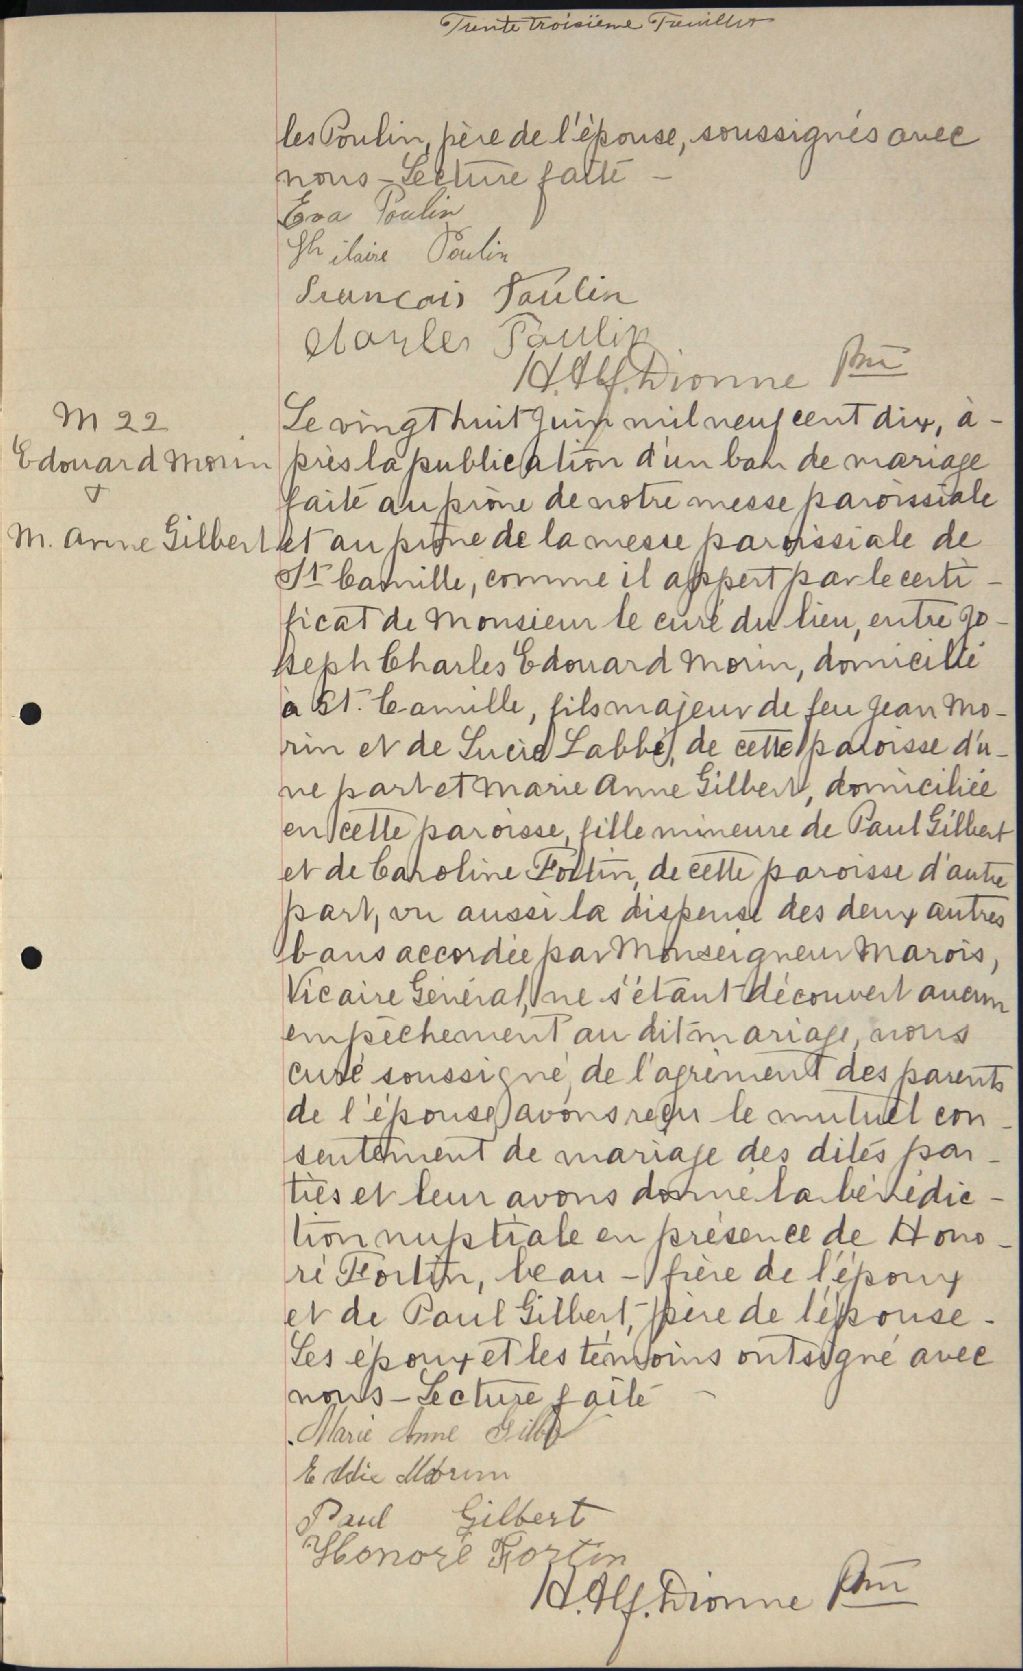 Trente troisième Feuillet
les Poulin, père de l'épouse, soussignés avec
nous - Lecture faite -
Eva Poulin
Hilaire Poulin
Francois Poulin
Charles Poulin
H. Alf. Dionne Ptre
M 22
Edouard Morin
&
M. Anne Gilbert
Le vingt huit Juin mil neuf cent dix, a-
près la publication d'un ban de mariage
faite au prône de notre messe paroissiale
et au prône de la messe paroissiale de
St Camille, comme il appert par le certi-
ficat de Monsieur le curé du lieu, entre Jo-
seph Charles Edouard Morin, domicilié
à St. Camille, fils majeur de feu Jean Mo-
rin et de Lucie Labbé, de cette paroisse d'u-
ne part et Marie Anne Gilbert, domiciliée
en cette paroisse, fille mineure de Paul Gilbert
et de Caroline Fortin, de cette paroisse d'autre
part, vu aussi la dispense des deux autres
bans accordée par Monseigneur Marois,
Vicaire Général, ne s'étant découvert aucun
empêchement au dit mariage, nous
curé soussigné, de l'agrément des parents
de l'épouse, avons reçu le mutuel con-
sentement de mariage des dites par-
ties et leur avons donné la bénédic-
tion nuptiale en présence de Hono-
ré Fortin, beau-frère de l'époux
et de Paul Gilbert, père de l'épouse -
Les époux et les témoins ont signé avec
nous - Lecture faite -
Marie Anne Gilbert
Eddie Morin
Paul Gilbert
Honoré Fortin
H. Alf. Dionne Ptre